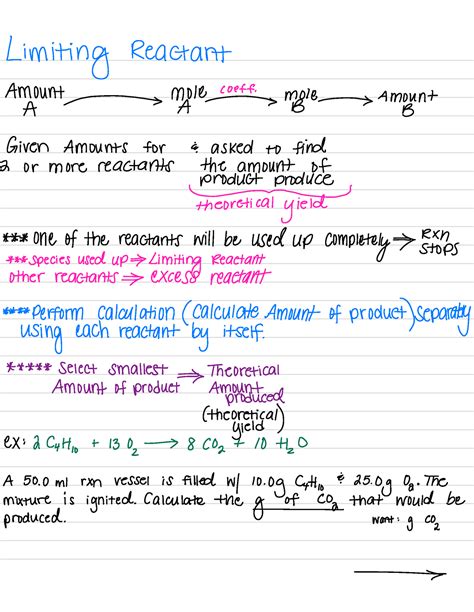 Limiting Reactant
Amount A → mole A coeff. → mole B → Amount B
Given Amounts for & asked to find
2 or more reactants the amount of
product produce
theoretical yield
*** One of the reactants will be used up completely ⇒ Rxn stops
*** Species used up ⇒ Limiting Reactant
other reactants ⇒ excess reactant
**** Perform calculation (Calculate Amount of product) separately
using each reactant by itself.
***** Select smallest ⇒ Theoretical
Amount of product Amount
produced
(theoretical
yield)
ex: 2 C₄H₁₀ + 13 O₂ → 8 CO₂ + 10 H₂O
A 50.0 ml rxn vessel is filled w/ 10.0g C₄H₁₀ & 25.0g O₂. The
mixture is ignited. Calculate the g of CO₂ that would be
produced. want: g CO₂